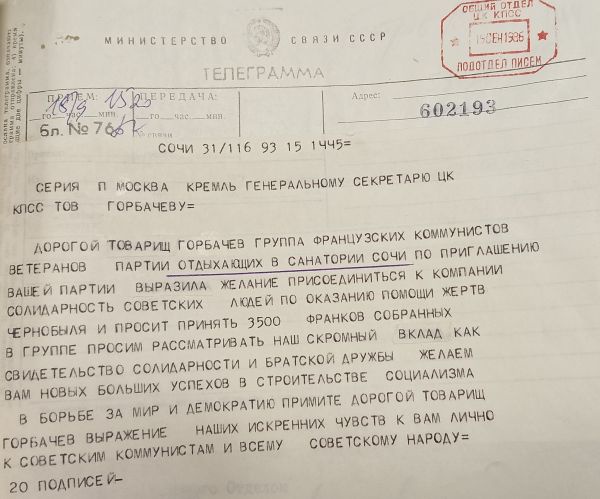 ОБЩИЙ ОТДЕЛ
ЦК КПСС
15 СЕН 1986
ПОДОТДЕЛ ПИСЕМ
МИНИСТЕРСТВО СВЯЗИ СССР
ТЕЛЕГРАММА
ПРИЕМ: ПЕРЕДАЧА:
Адрес:
го час. мин. го час. мин.
602193
Бл. № 76 № связи
СОЧИ 31/116 93 15 1445=
СЕРИЯ П МОСКВА КРЕМЛЬ ГЕНЕРАЛЬНОМУ СЕКРЕТАРЮ ЦК
КПСС ТОВ ГОРБАЧЕВУ=
ДОРОГОЙ ТОВАРИЩ ГОРБАЧЕВ ГРУППА ФРАНЦУЗСКИХ КОММУНИСТОВ
ВЕТЕРАНОВ ПАРТИИ ОТДЫХАЮЩИХ В САНАТОРИИ СОЧИ ПО ПРИГЛАШЕНИЮ
ВАШЕЙ ПАРТИИ ВЫРАЗИЛА ЖЕЛАНИЕ ПРИСОЕДИНИТЬСЯ К КОМПАНИИ
СОЛИДАРНОСТЬ СОВЕТСКИХ ЛЮДЕЙ ПО ОКАЗАНИЮ ПОМОЩИ ЖЕРТВ
ЧЕРНОБЫЛЯ И ПРОСИТ ПРИНЯТЬ 3500 ФРАНКОВ СОБРАННЫХ
В ГРУППЕ ПРОСИМ РАССМАТРИВАТЬ НАШ СКРОМНЫЙ ВКЛАД КАК
СВИДЕТЕЛЬСТВО СОЛИДАРНОСТИ И БРАТСКОЙ ДРУЖБЫ ЖЕЛАЕМ
ВАМ НОВЫХ БОЛЬШИХ УСПЕХОВ В СТРОИТЕЛЬСТВЕ СОЦИАЛИЗМА
В БОРЬБЕ ЗА МИР И ДЕМОКРАТИЮ ПРИМИТЕ ДОРОГОЙ ТОВАРИЩ
ГОРБАЧЕВ ВЫРАЖЕНИЕ НАШИХ ИСКРЕННИХ ЧУВСТВ К ВАМ ЛИЧНО
К СОВЕТСКИМ КОММУНИСТАМ И ВСЕМУ СОВЕТСКОМУ НАРОДУ=
20 ПОДПИСЕЙ-